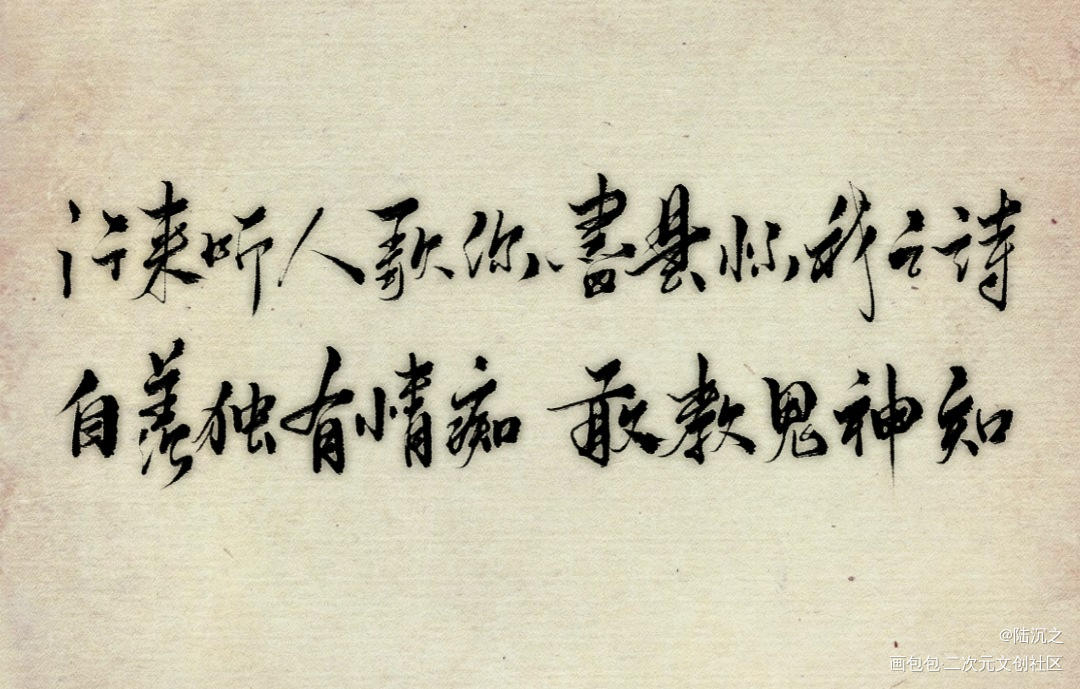 来听人歌你 怀之诗
自羡独有情痴 敢教鬼神知
@陆沉之
画包包·二次元文创社区